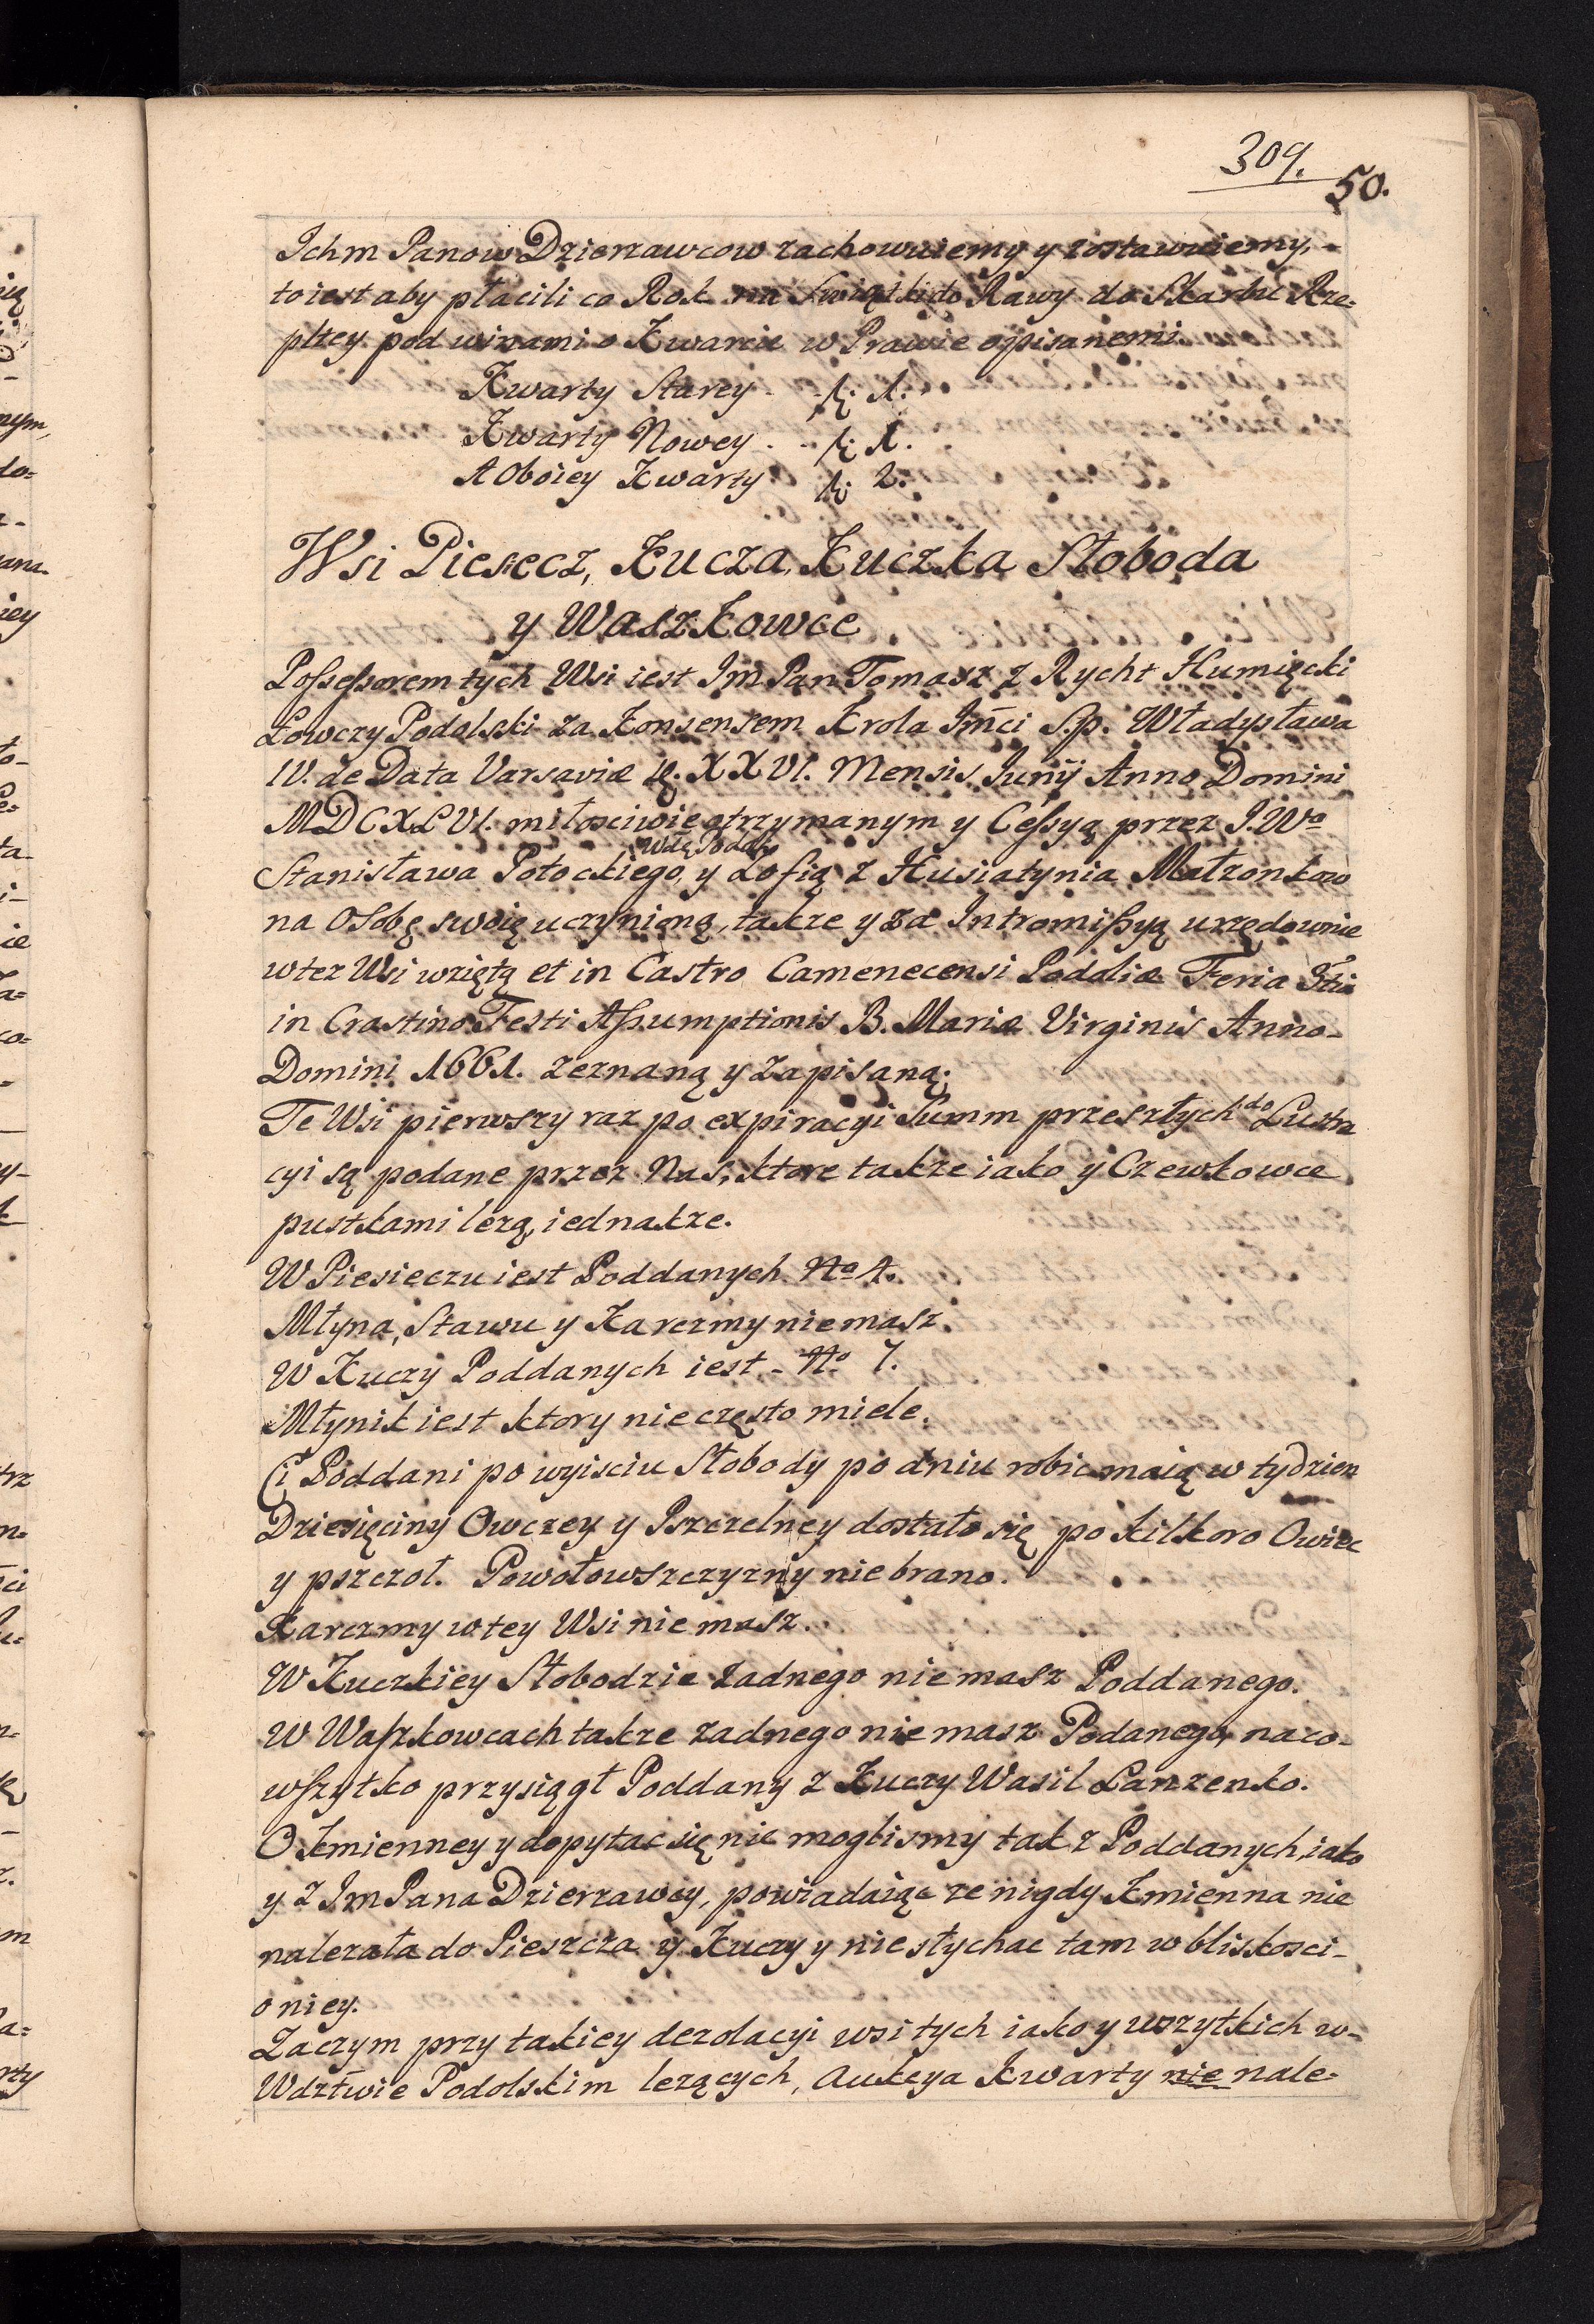 309.
50.
Ichm Panow Dzierzawcow zachowuiemy y zostawuiemy,
to iest aby płacili co Rok na Swiątki do Rawy do Skarbu Rze=
pltey pod winami o Kwarcie w Prawie opisanemi
Kwarty Starey - - fl. 1.
Kwarty Nowey - - fl. 1.
A Oboiey Kwarty fl. 2.
Wsi Piesecz, Kucza, Kuczka Słoboda
y Waszkowce
Possessorem tych Wsi iest Im Pan Tomasz z Rycht Humięcki
Łowczy Podolski za Konsensem Krola Imci S.p. Władysława
IV. de Data Varsaviæ XXVI. Mensis Junij Anno Domini
MDCXLVI. miłosciwie otrzymanym y Cessyą przez J.Wo
Wdę Podol
Stanisława Potockiego, y Zofią z Husiatynia Małzonkow
na Osobę swoię uczynioną, takze y za Intromissyą urzędownie
w tez Wsi wziętą et in Castro Camenecensi Podoliæ Feria 3tia
in Crastino Festi Assumptionis B. Mariæ Virginis Anno-
Domini 1661. zeznaną y zapisaną;
Te Wsi pierwszy raz po expiracyi Summ przeszłych do Lustra
cyi są podane przez Nas, ktore takze iako y Czewkowce
pustkami lezą, iednakze.
W Piesieczu iest Poddanych No 4.
Młyna, Stawu y Karczmy niemasz.
W Kuczy Poddanych iest - No 7.
Młynik iest ktory nieczęsto miele.
Ci Poddani po wyisciu Słobody po dniu robic maią w tydzien
Dziesięciny Owczey y Pszczelney dostało się po kilkoro Owiec
y pszczoł. Powołowszczyzny nie brano.
Karczmy w tey Wsi nie masz.
W Kuczkiey Słobodzie zadnego nie masz Poddanego.
W Waszkowcach takze zadnego nie masz Podanego, na co-
wszytko przysiągł Poddany z Kuczy Wasil Lanzenko.
O Kmienney y dopytac się nie moglismy tak z Poddanych, iako
y z Im Pana Dzierzawcy, powiadaiąc ze nigdy Kmienna nie
nalezała do Pieszcza y Kuczy y nie słychac tam w bliskosci-
o niey.
Zaczym przy takiey dezolacyi wsi tych iako y wszytkich w-
Wdztwie Podolskim lezących, Aukcya Kwarty nie nale=